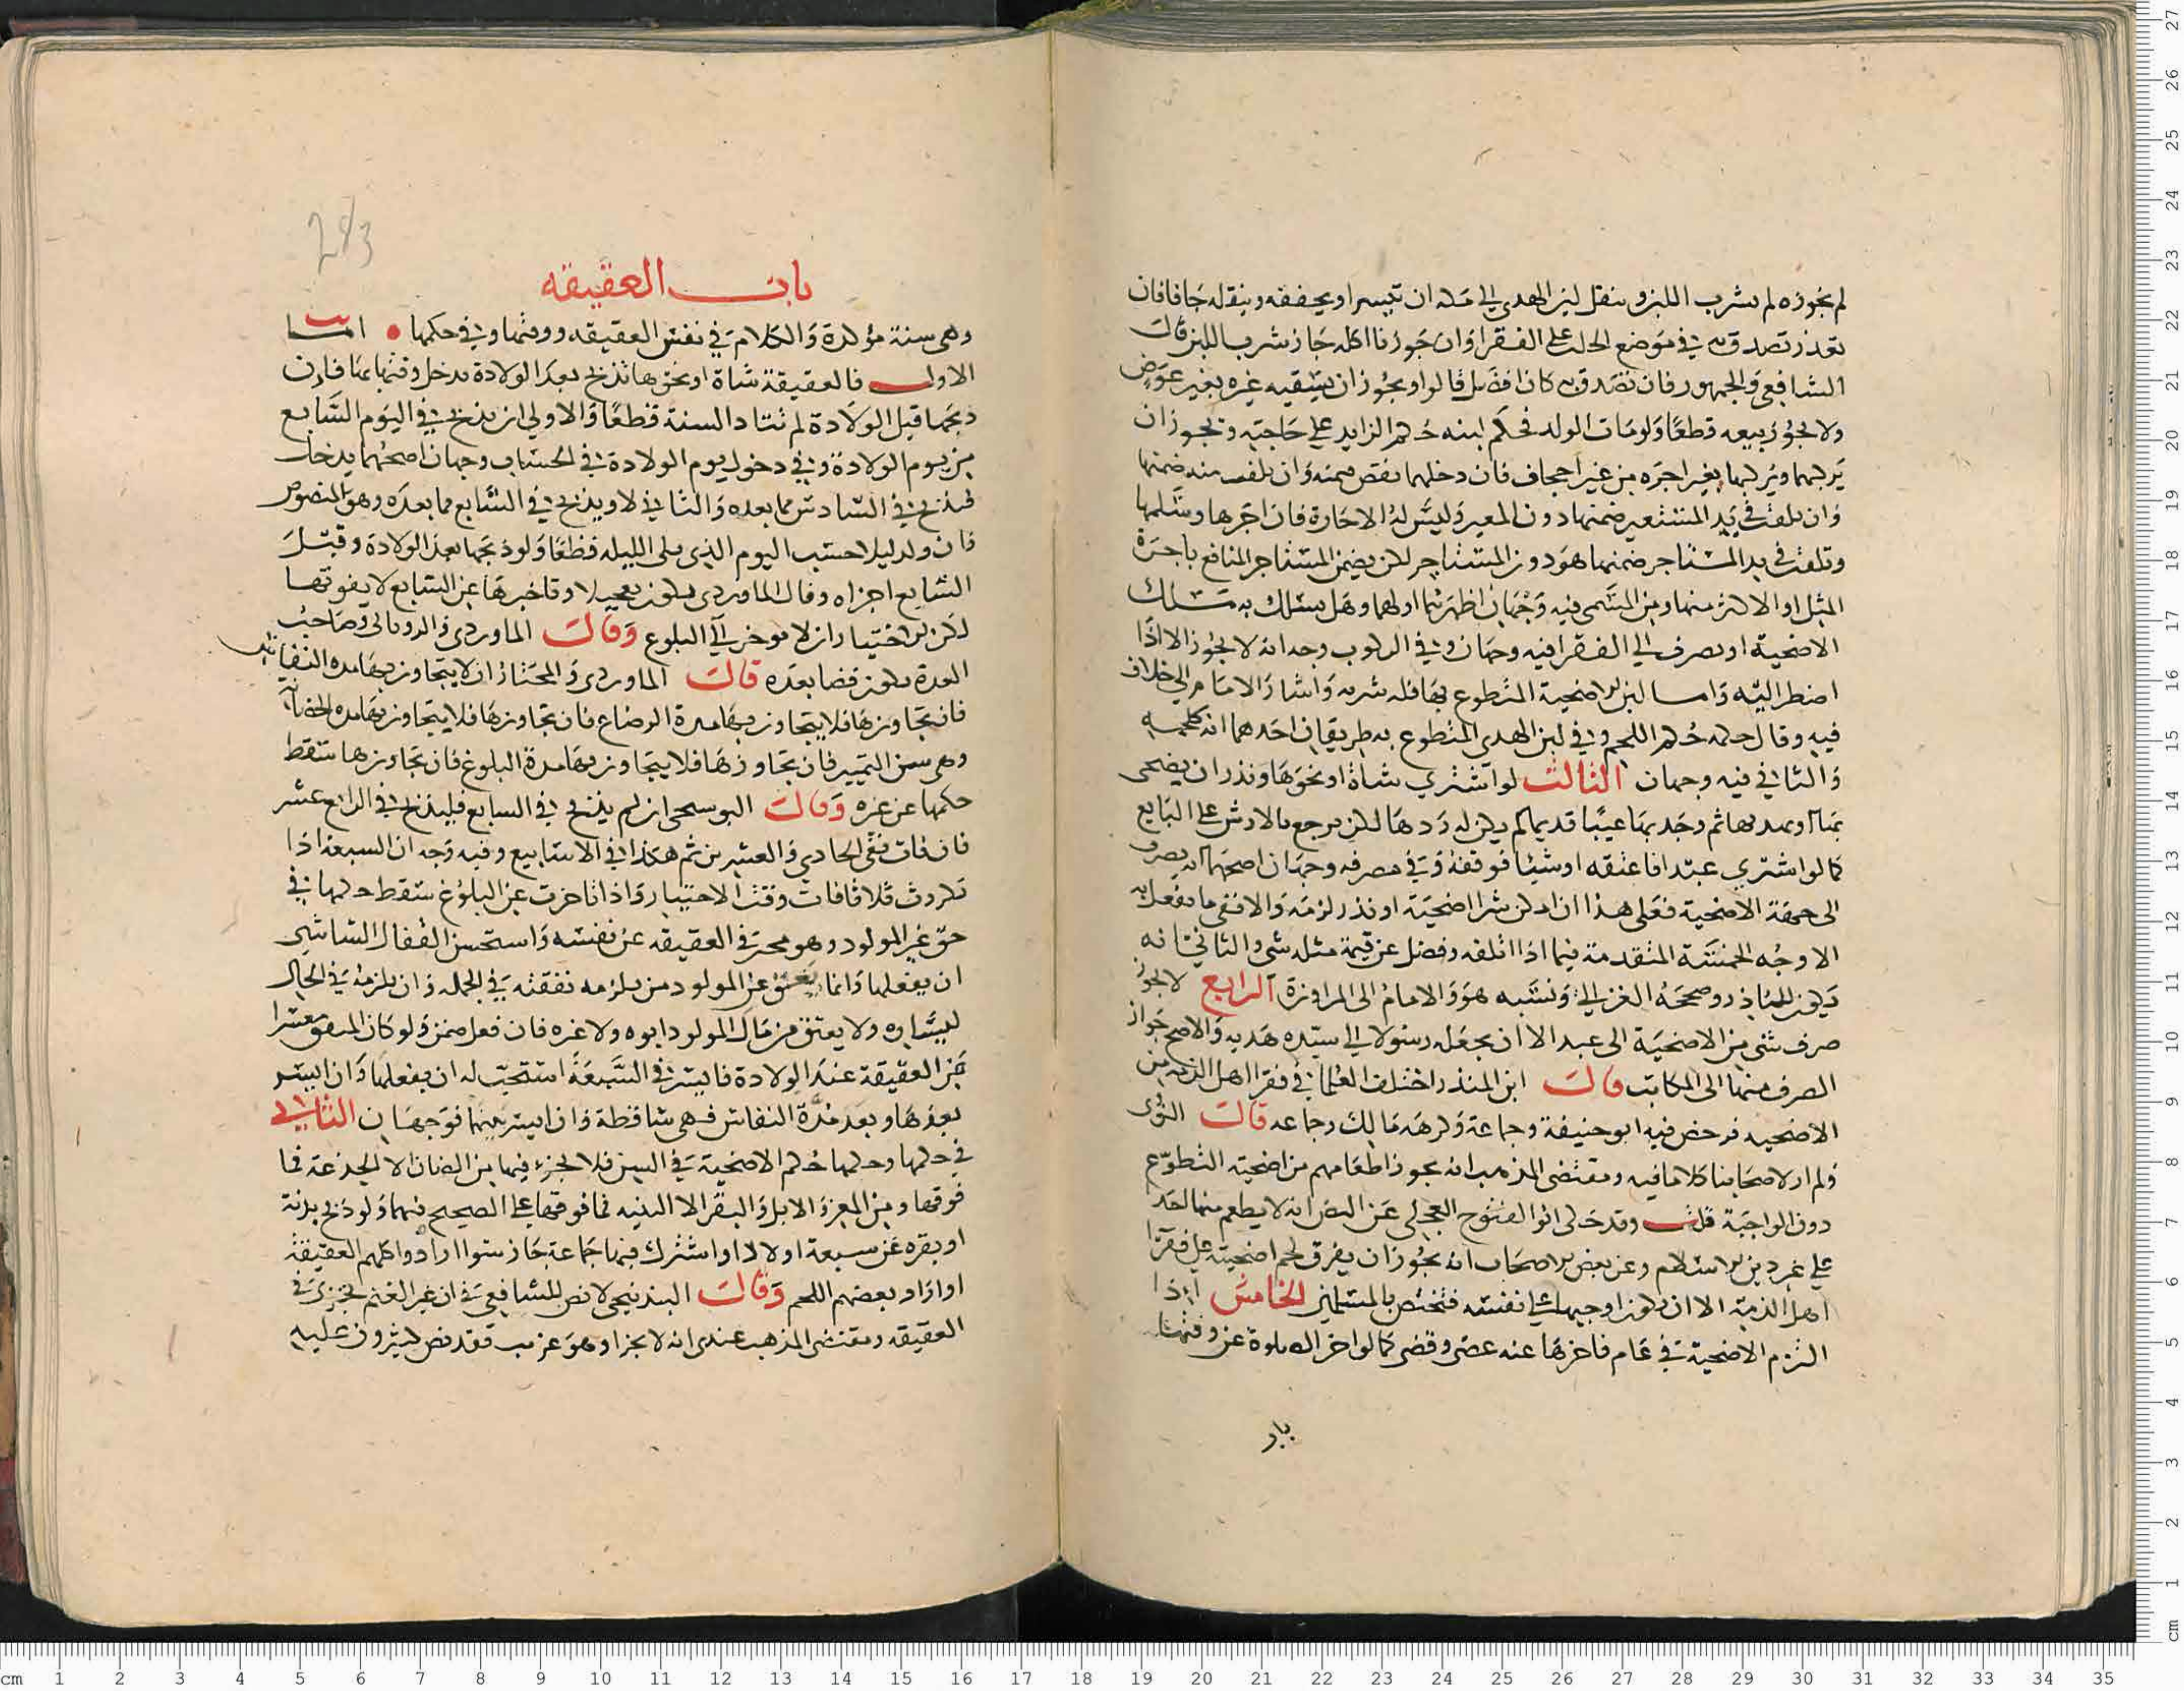 لم يجوزه لم يشرب اللبن وينقل لبن الهدي الي مكة ان تيسر او يجففه وينقله جافا فان
تعذر تصدق به في موضع الحلب على الفقرا وان جوزنا اكله جاز شرب اللبن قال
الشافعي والجمهور فان تصدق به كان افضل قالوا ويجوز ان يسقيه غيره بغير عوض
ولا يجوز بيعه قطعا ولو مات الولد فحكم لبنه حكم الزايد على حاجته ويجوز ان
يركبها ويركبها بغير اجره من غير اجحاف فان دخلها نقص ضمنه وان تلفت منه ضمنها
وان تلفت في يد المستعير ضمنها دون المعير وليس له الاجارة فان اجرها وسلمها
وتلفت في يد المستاجر ضمنها هو دون المستاجر لكن يضمن المستاجر المنافع باجرة
المثل او الاكثر منها ومن المسمى فيه وجهان اظهرهما اولهما وهل يسلك به مسلك
الاضحية او يصرف الي الفقرا فيه وجهان وفي الركوب وجه انه لا يجوز الا اذا
اضطر اليه واما لبن الاضحية المتطوع بها فله شربه واشار الامام الي خلاف
فيه وقال حكمه حكم اللحم وفي لبن الهدي المتطوع به طريقان احدهما انه كلحمه
والثاني فيه وجهان الثالث لو اشتري شاة او نحوها ونذر ان يضحى
بها او يهديها ثم وجد بها عيبا قديما لم يكن له ردها لكن يرجع بالارش على البايع
كما لو اشتري عبدا فاعتقه او شيا فوقفه وفي مصرفه وجهان اصحهما انه يصرف
الى جهة الاضحية فعلى هذا ان امكن شرا اضحية او نذر لزمه والا ففي ما يفعل به
الاوجه الخمسة المتقدمة فيما اذا اتلفه وفضل عن قيمة مثله شي والثاني انه
يكون للناذر وصححه الغزالي ونسبه هو والامام الى المراوزة الرابع لا يجوز
صرف شي من الاضحية الى عبد الا ان يجعل رسولا الي سيده هديه والاصح جواز
الصرف منها الى المكاتب قال ابن المنذر اختلف العلما في فقرا اهل الذمه من
الاضحيه فرخص فيه ابو حنيفة وجماعة وكرهه مالك وجماعه قال النووي
ولم ار لاصحابنا كلاما فيه ومقتضى المذهب انه يجوز اطعامهم من اضحية التطوع
دون الواجبة قلت وقد حكى ابو الفتوح العجلي عن النص انه لا يطعم منها احد
على غير دين الاسلام وعن بعض الاصحاب انه يجوز ان يفرق لحم اضحيته على فقرا
اهل الذمة الا ان يكون اوجبها على نفسه فتختص بالمسلمين الخامس اذا
التزم الاضحية في عام فاخرها عنه عصى وقضى كما لو اخر الصلوة عن وقتها
باب
283
باب العقيقه
وهى سنة مؤكدة والكلام في نفس العقيقه ووقتها وفي حكمها اما
الاول فالعقيقة شاة او نحوها تذبح بعد الولادة يدخل وقتها بها فان
ذبحها قبل الولادة لم تتاد السنة قطعا والاولي ان يذبح في اليوم السابع
من يوم الولادة وفي دخول يوم الولادة في الحساب وجهان اصحهما يدخل
فيذبح في السادس مما بعده والثاني لا ويذبح في السابع مما بعده وهو المنصوص
فان ولد ليلا حسب اليوم الذي يلى الليله قطعا ولو ذبحها بعد الولادة وقبل
السابع اجزاه وقال الماوردي يكون تعجيلا وتاخيرها عن السابع لا يفوتها
لكن الاختيار ان لا يوخر الي البلوع وقال الماوردي والروياني وصاحب
العدة يكون قضا بعده قال الماوردي والمختار ان لا يتجاوز بها مده النفاس
فان تجاوزها فلا يتجاوز بها مدة الرضاع فان تجاوزها فلا يتجاوز بها مده الحضانة
وهى سن التمييز فان تجاوزها فلا يتجاوز بها مدة البلوغ فان تجاوزها سقط
حكمها عن غيره وقال البوسنجى ان لم يذبح في السابع فليذبح في الرابع عشر
فان فات ففى الحادي والعشرين ثم هكذا في الاسابيع وفيه وجه ان السبعة اذا
تكررت ثلاثا فات وقت الاختيار واذا تاخرت عن البلوغ سقط حكمها في
حق غير المولود وهو مخير في العقيقه عن نفسه واستحسن القفال الشاشي
ان يفعلها وانما يعق عن المولود من يلزمه نفقته في الجمله وان يلزمه في الحال
ليساره ولا يعق من مال المولود ابوه ولا غيره فان فعل ضمن ولو كان المنفق معسرا
عن العقيقة عند الولادة فايسر في السبعة استحب له ان يفعلها وان ايسر
بعدها وبعد مدة النفاس فهى ساقطة وان ايسر بينهما فوجهان الثاني
في حكمها وحكمها حكم الاضحية في السن فلا يجزي فيها من الضان الا الجذعة فما
فوقها ومن المعز والابل والبقر الا الثنيه فما فوقها على الصحيح فيهما ولو ذبح بدنة
او بقره عن سبعة اولاد او اشترك فيها جماعة جاز سوا ارادوا كلهم العقيقة
او اراد بعضهم اللحم وقال البندنيجى لا نص للشافعي في ان غير الغنم يجزي في
العقيقه ومقتضى المذهب عندى انه لا يجزا وهو غريب فقد نص كثيرون عليه